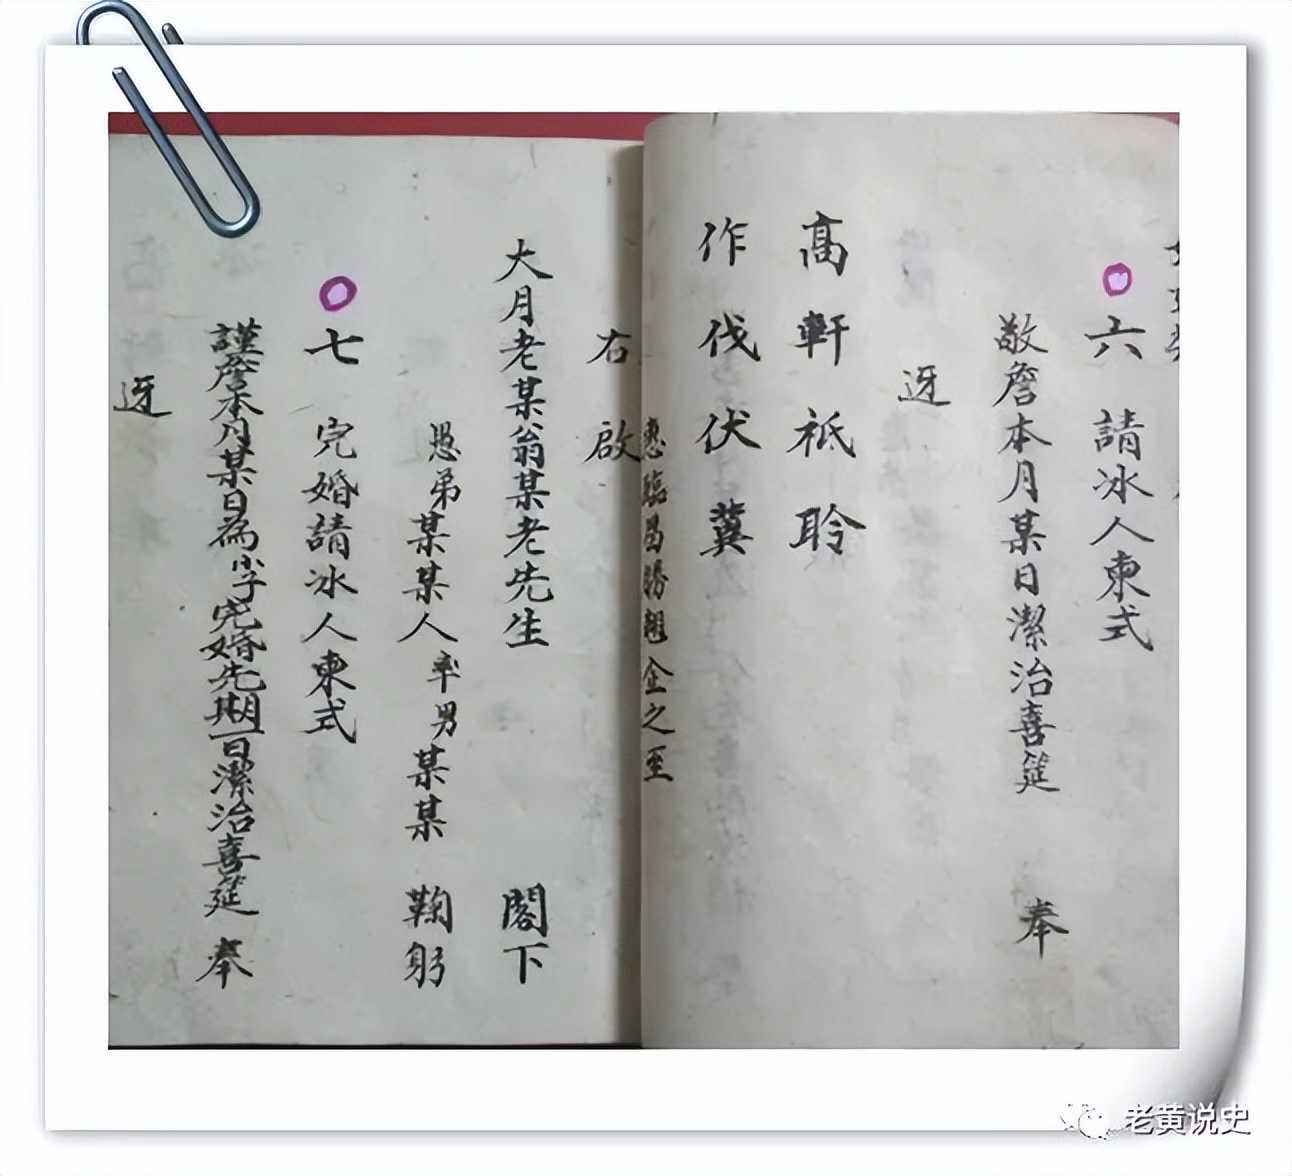 六 請冰人柬式
敬詹本月某日潔治喜筵 奉
迓
高軒祗聆
作伐伏冀
惠臨曷勝翹企之至
右啟
大月老某翁某老先生 閣下
愚弟某某人率男某某 鞠躬
七 完婚請冰人柬式
謹詹本月某日為小子完婚先期一日潔治喜筵 奉
迓
老黄说史